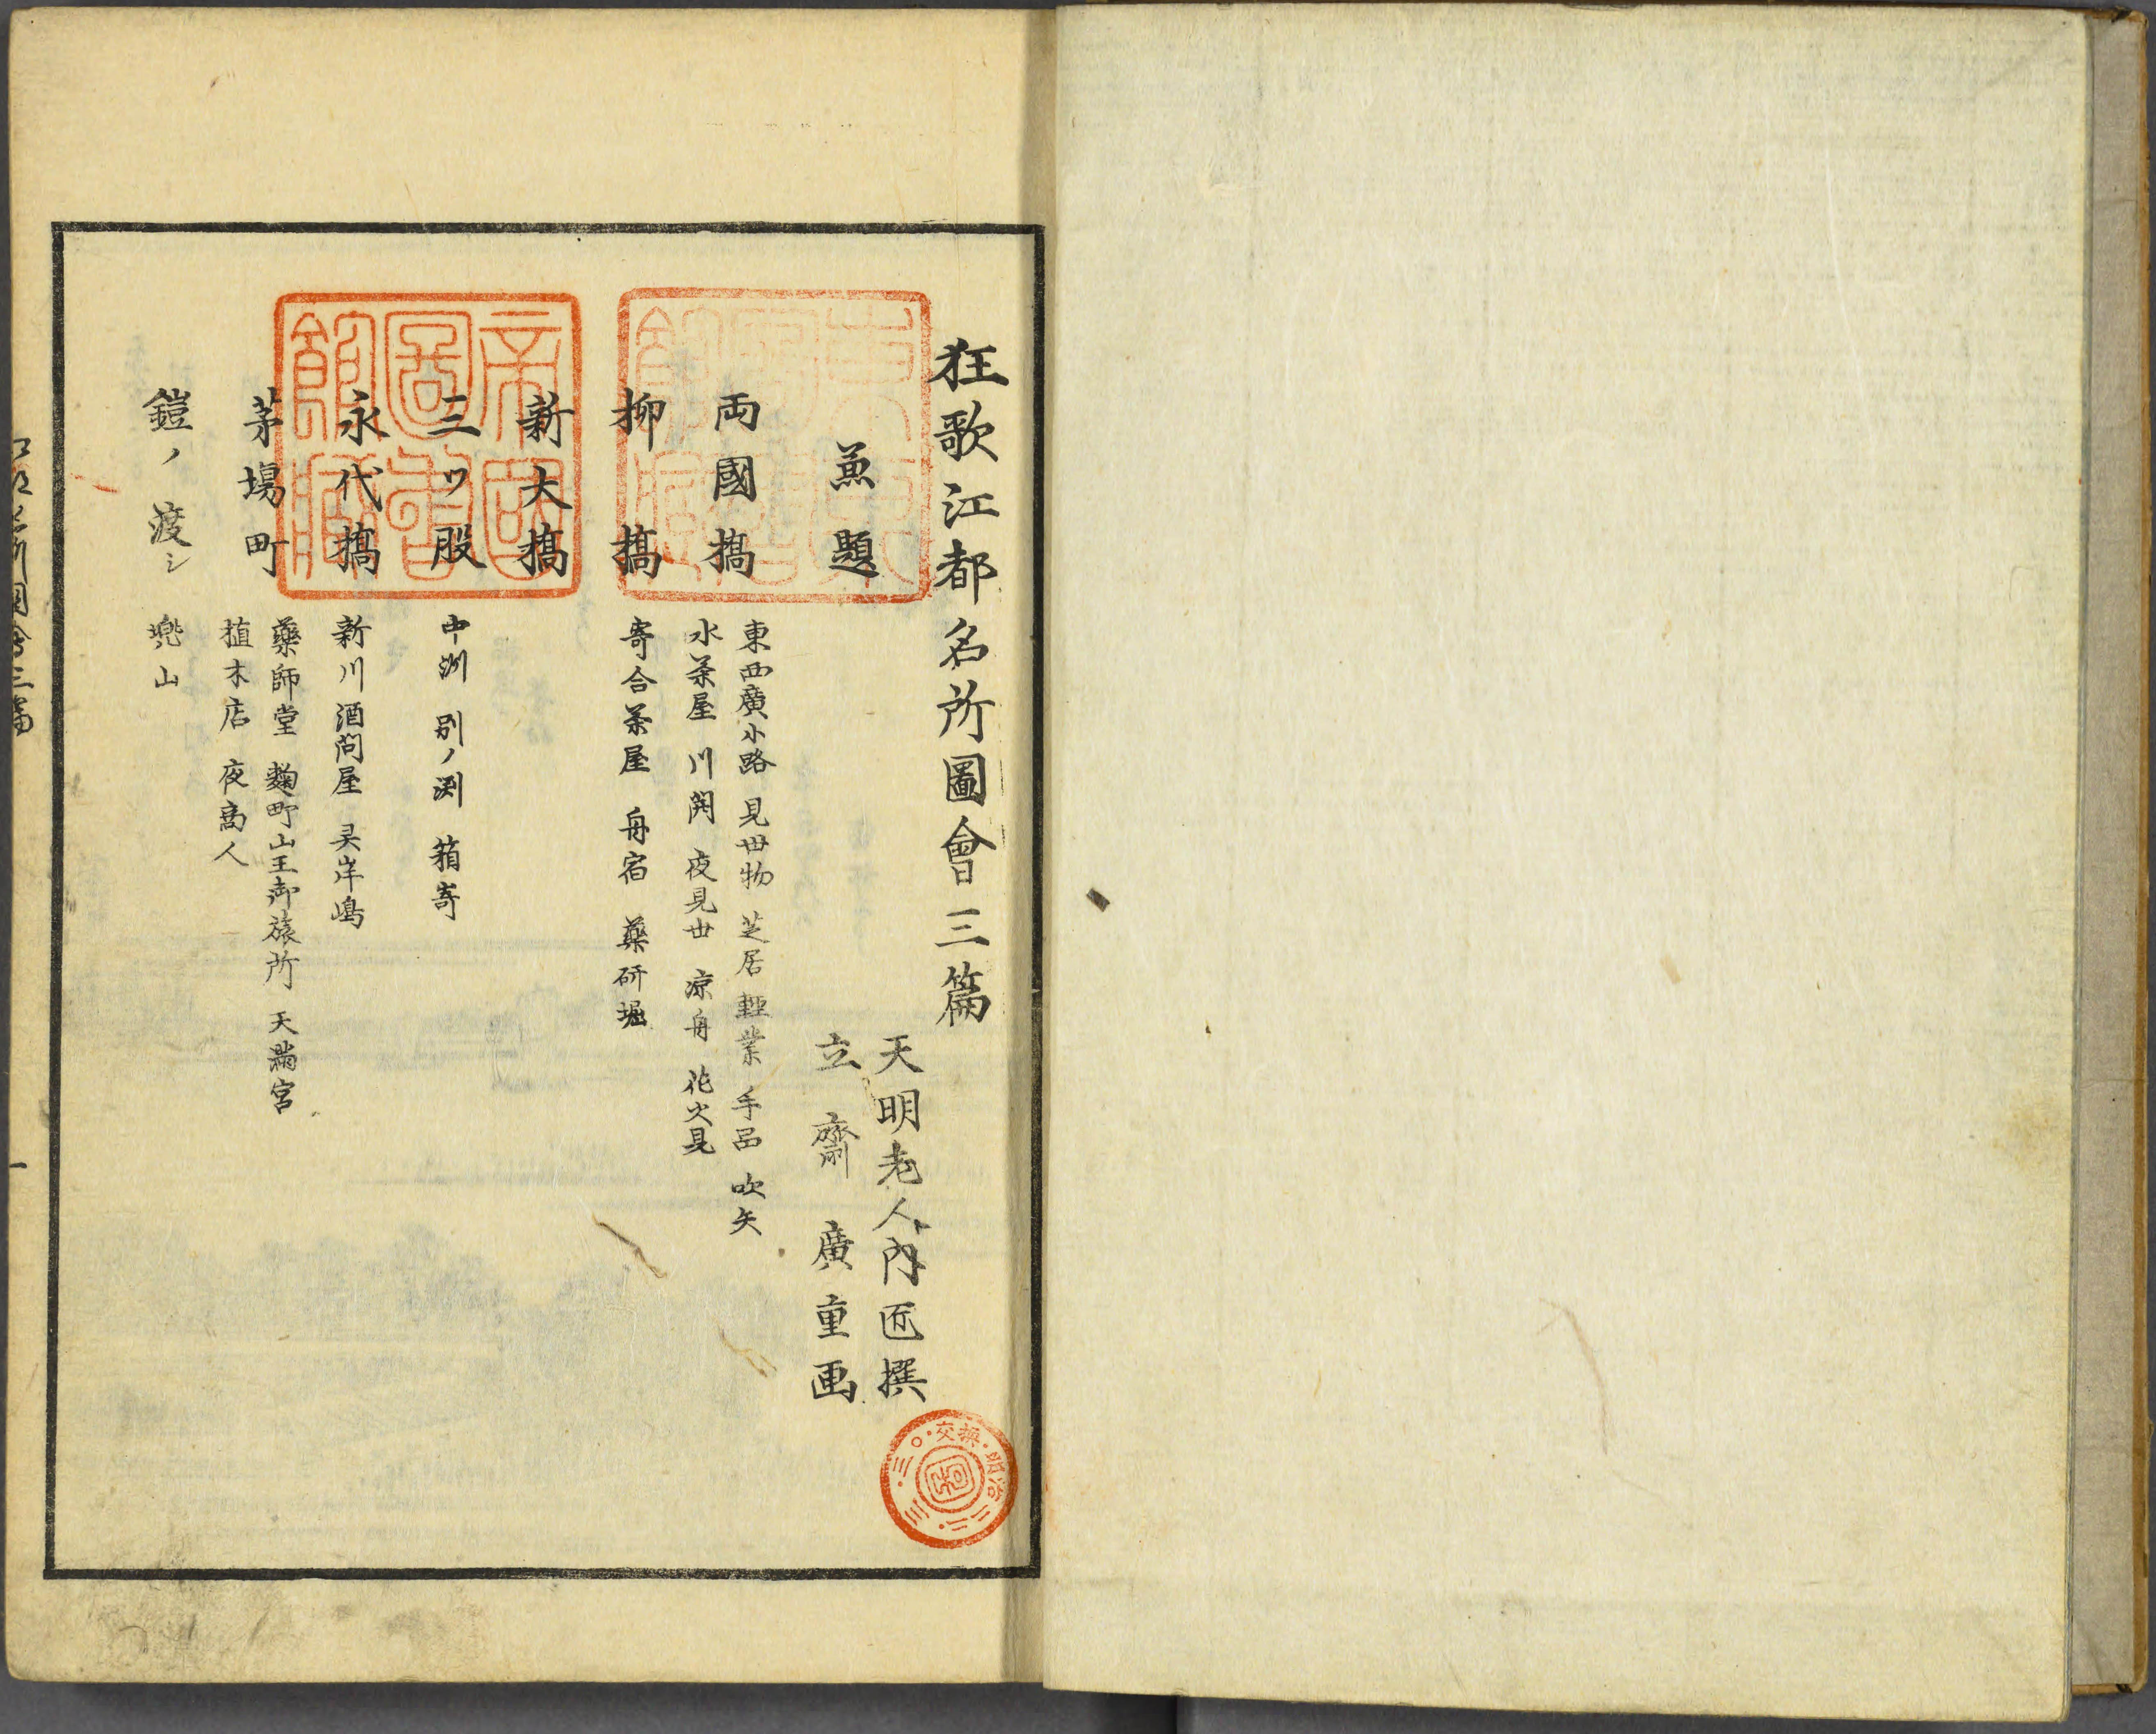 狂歌江都名所圖會三篇
天明老人内匠撰
立齋廣重画
兼題
兩國橋
東西廣小路 見世物 芝居 輕業 手品 吹矢
水茶屋 川開 夜見世 凉舟 花火見
柳橋
寄合茶屋 舟宿 藥研堀
新大橋
三ツ股
中洲 別ノ渕 箱寄
永代橋
新川酒問屋 灵岸嶋
茅場町
藥師堂 麹町山王御旅所 天滿宮
植木店 夜商人
鎧ノ渡シ
兠山
帝國圖書館藏
東京圖書館藏
交換・明治二二・三・三〇・